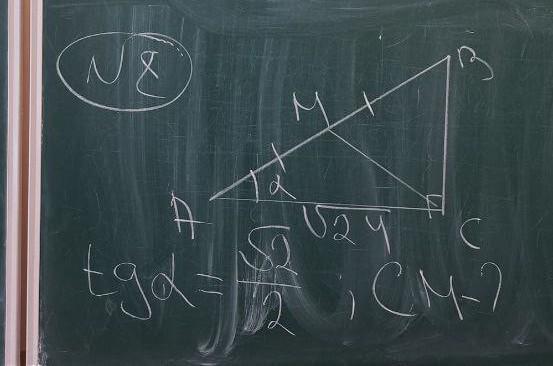 N8
B
M
α
A
√24
C
tgα = √2/2 ; CM-?